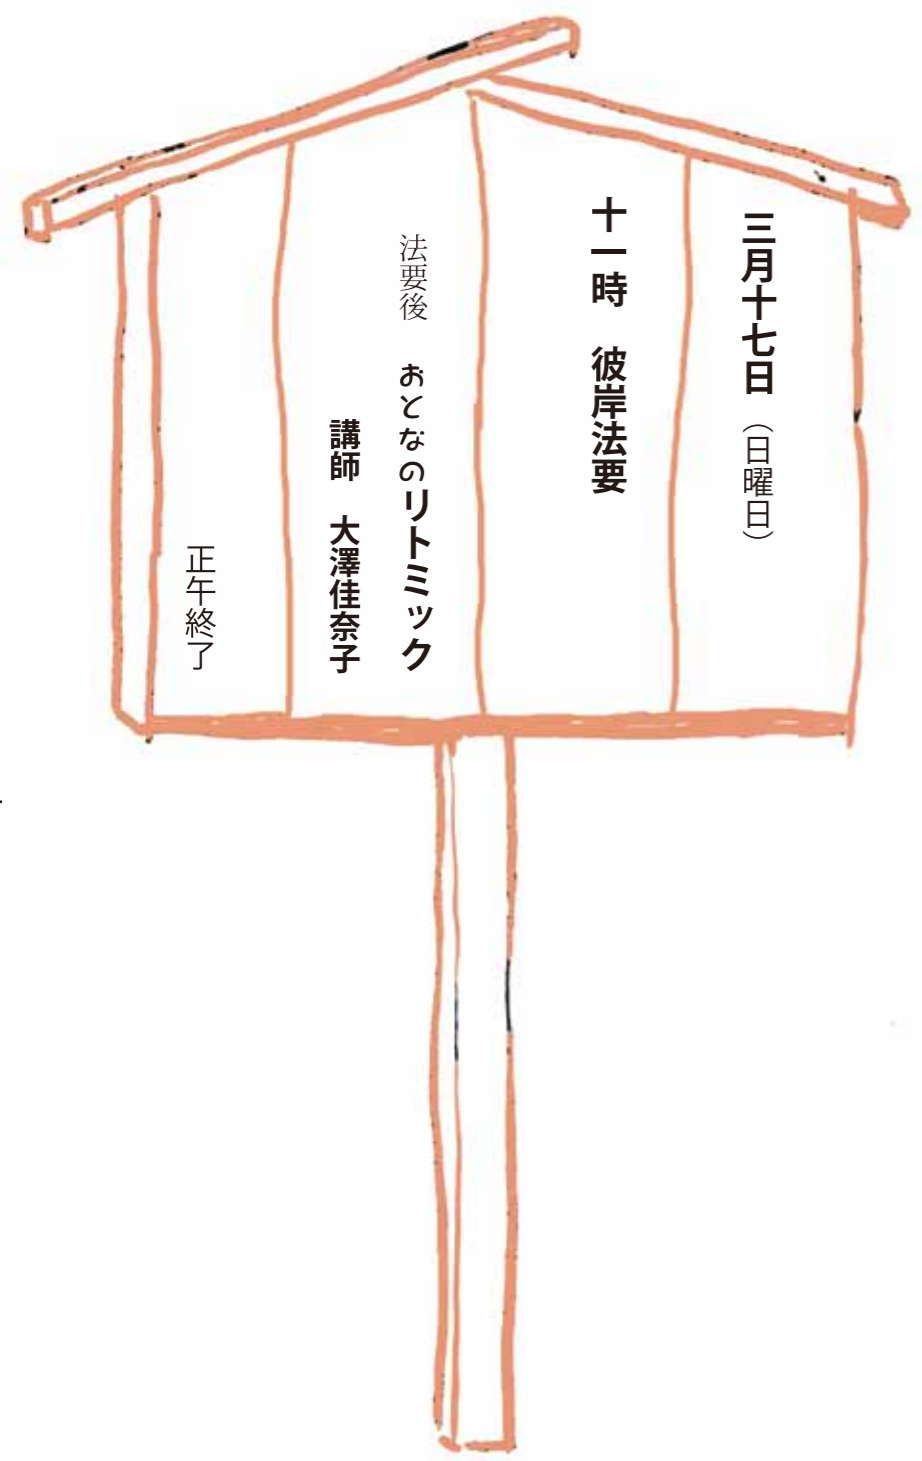 三月十七日（日曜日）
十一時　彼岸法要
法要後　おとなのリトミック
講師　大澤佳奈子
正午終了